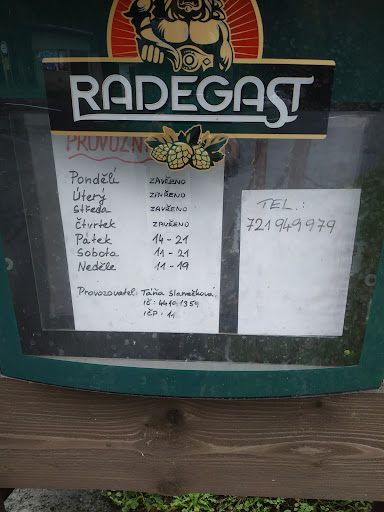 RADEGAST
PROVOZNÍ
Pondělí ZAVŘENO
Úterý ZAVŘENO
Středa ZAVŘENO
Čtvrtek ZAVŘENO
Pátek 14 - 21
Sobota 11 - 21
Neděle 11 - 19
Provozovatel: Táňa
IČ: 44101359
IČP. 11
TEL.:
721 949 979